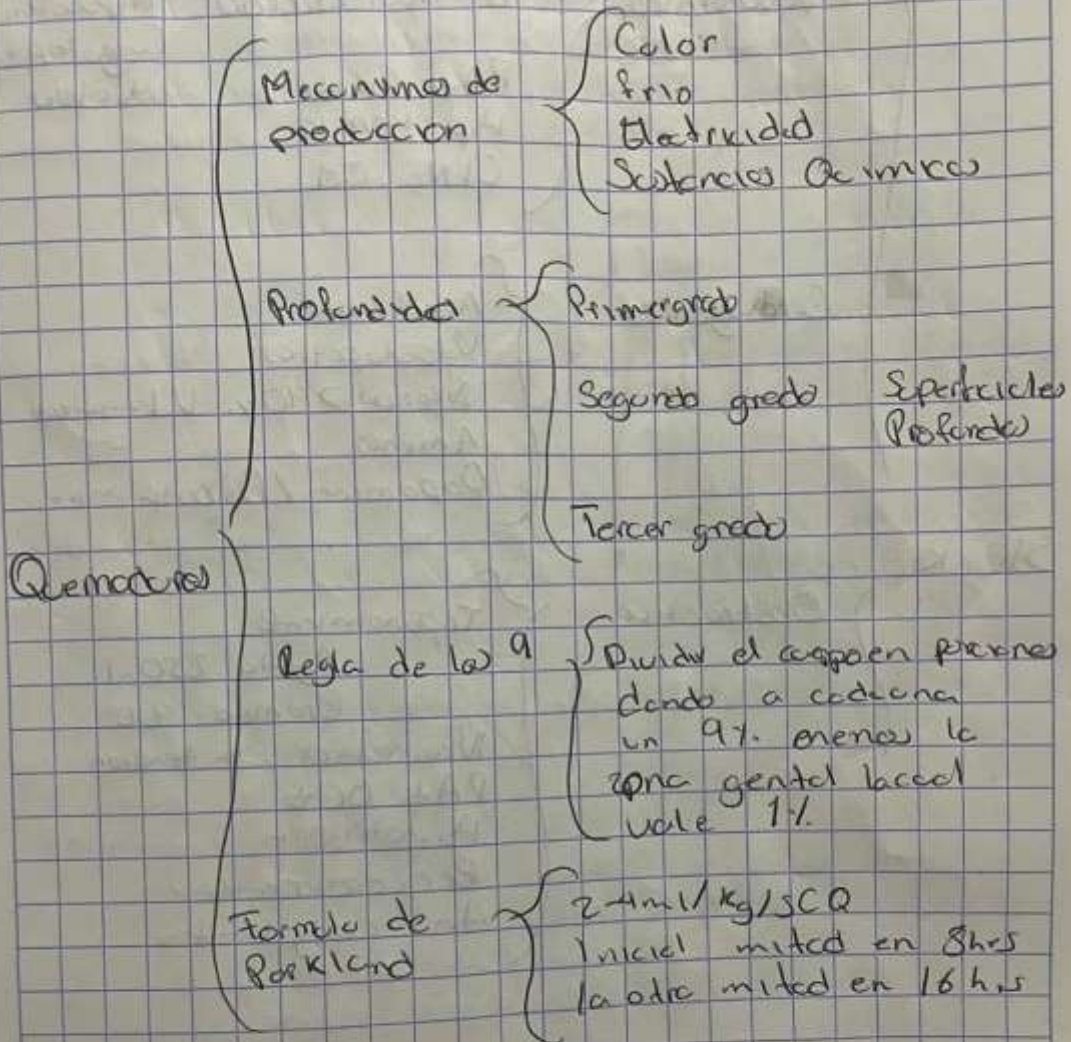 Quemaduras
Mecanismos de
producción
Calor
frio
Electricidad
Sustancias Quimicas
Profundidad
Primer grado
Segundo grado Superficiales
Profundas
Tercer grado
Regla de los 9
Dividir el cuerpo en porciones
dando a cada una
un 9% menos la
zona genital la cual
vale 1%
Formula de
Parkland
2-4ml/kg/SCQ
Inicial mitad en 8hrs
la otra mitad en 16 hrs